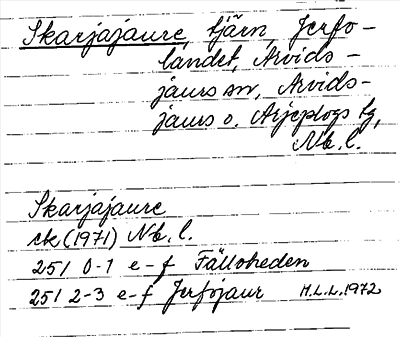 Skarjajaure, tjärn, Jerfo-
landet, Arvids-
jaurs sn, Arvids-
jaurs o. Arjeplogs tg,
Nb. l.
Skarjajaure
ek (1971) Nb. l.
25I 0-1 e-f Fälloheden
25I 2-3 e-f Jerfojaur H.L.L. 1972